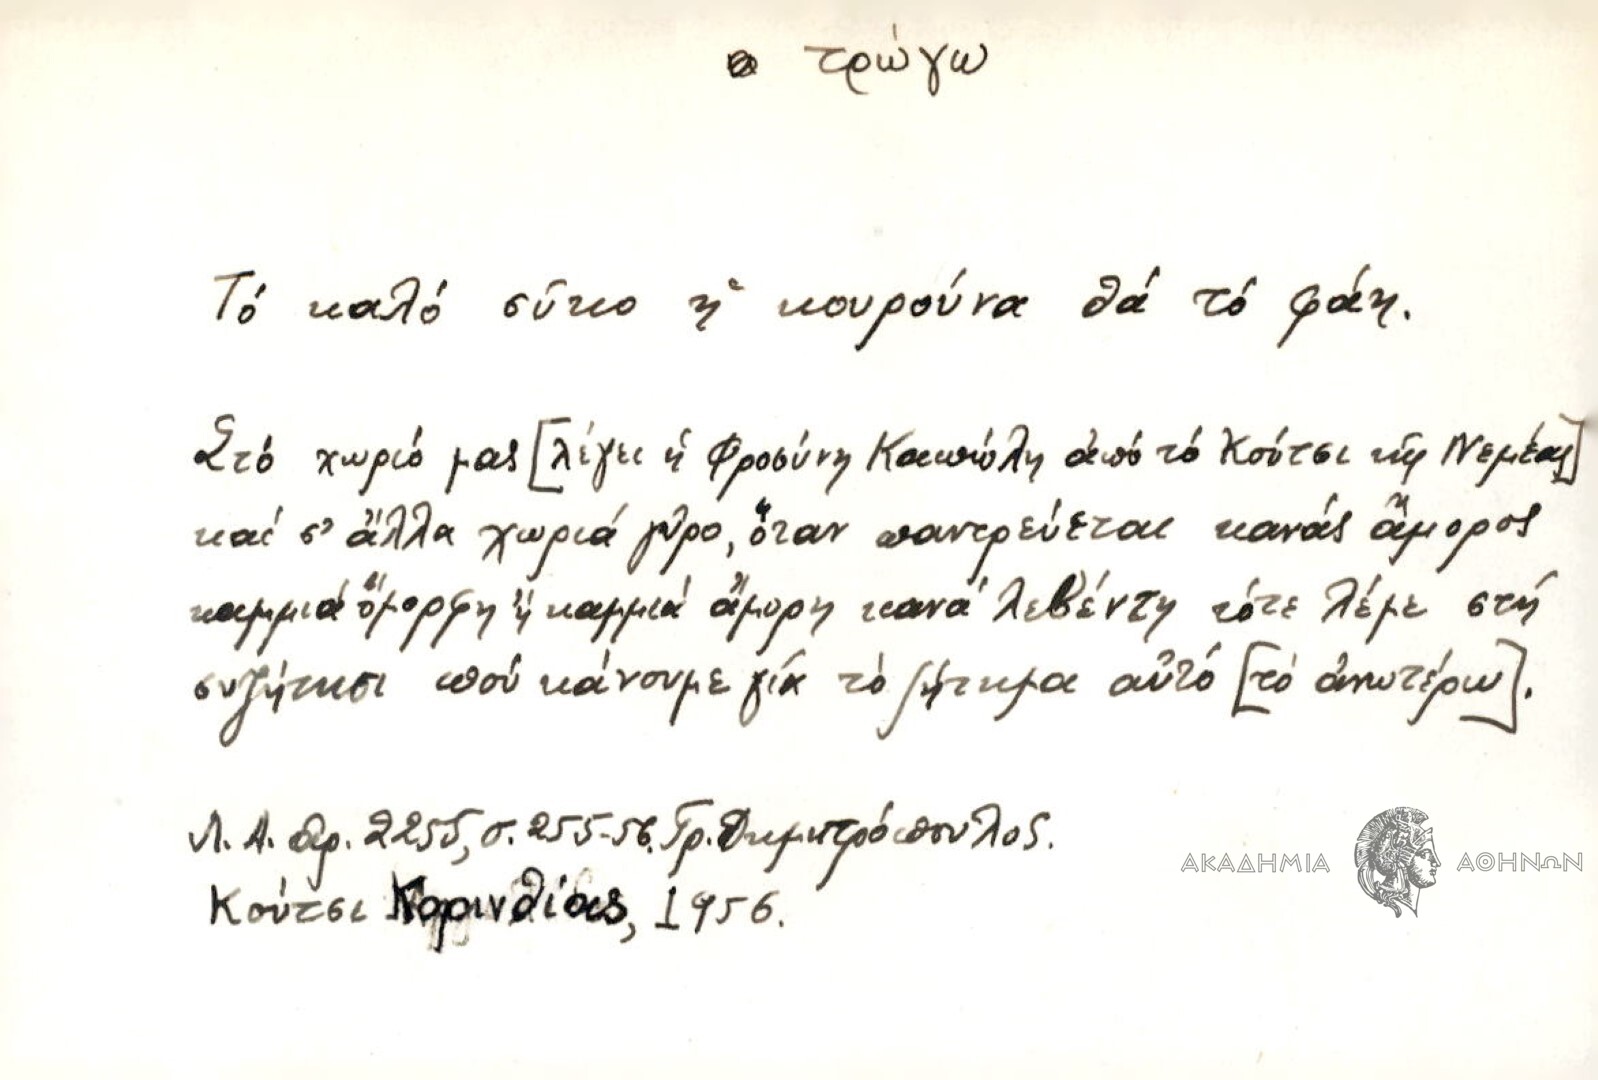 τρώγω
Τό καλό σῦκο ἡ κουρούνα θά τό φάη.
Στό χωριό μας [λέγει ἡ Φροσύνη Καπώλη ἀπό τό Κούτσι τῆς Νεμέας]
καί σ' ἄλλα χωριά γῦρο, ὅταν παντρεύεται κανάς ἄμορος
καμμιά ὄμορφη ἤ καμμιά ἄμορη κανά λεβέντη τότε λέμε στή
συζήτησι πού κάνουμε γιά τό ζήτημα αὐτό [τό ἀνωτέρω].
Λ. Α. ἀρ. 2255, σ. 255-56. Γρ. Δημητρόπουλος.
Κούτσι Κορινθίας, 1956.
ΑΚΑΔΗΜΙΑ ΑΘΗΝΩΝ